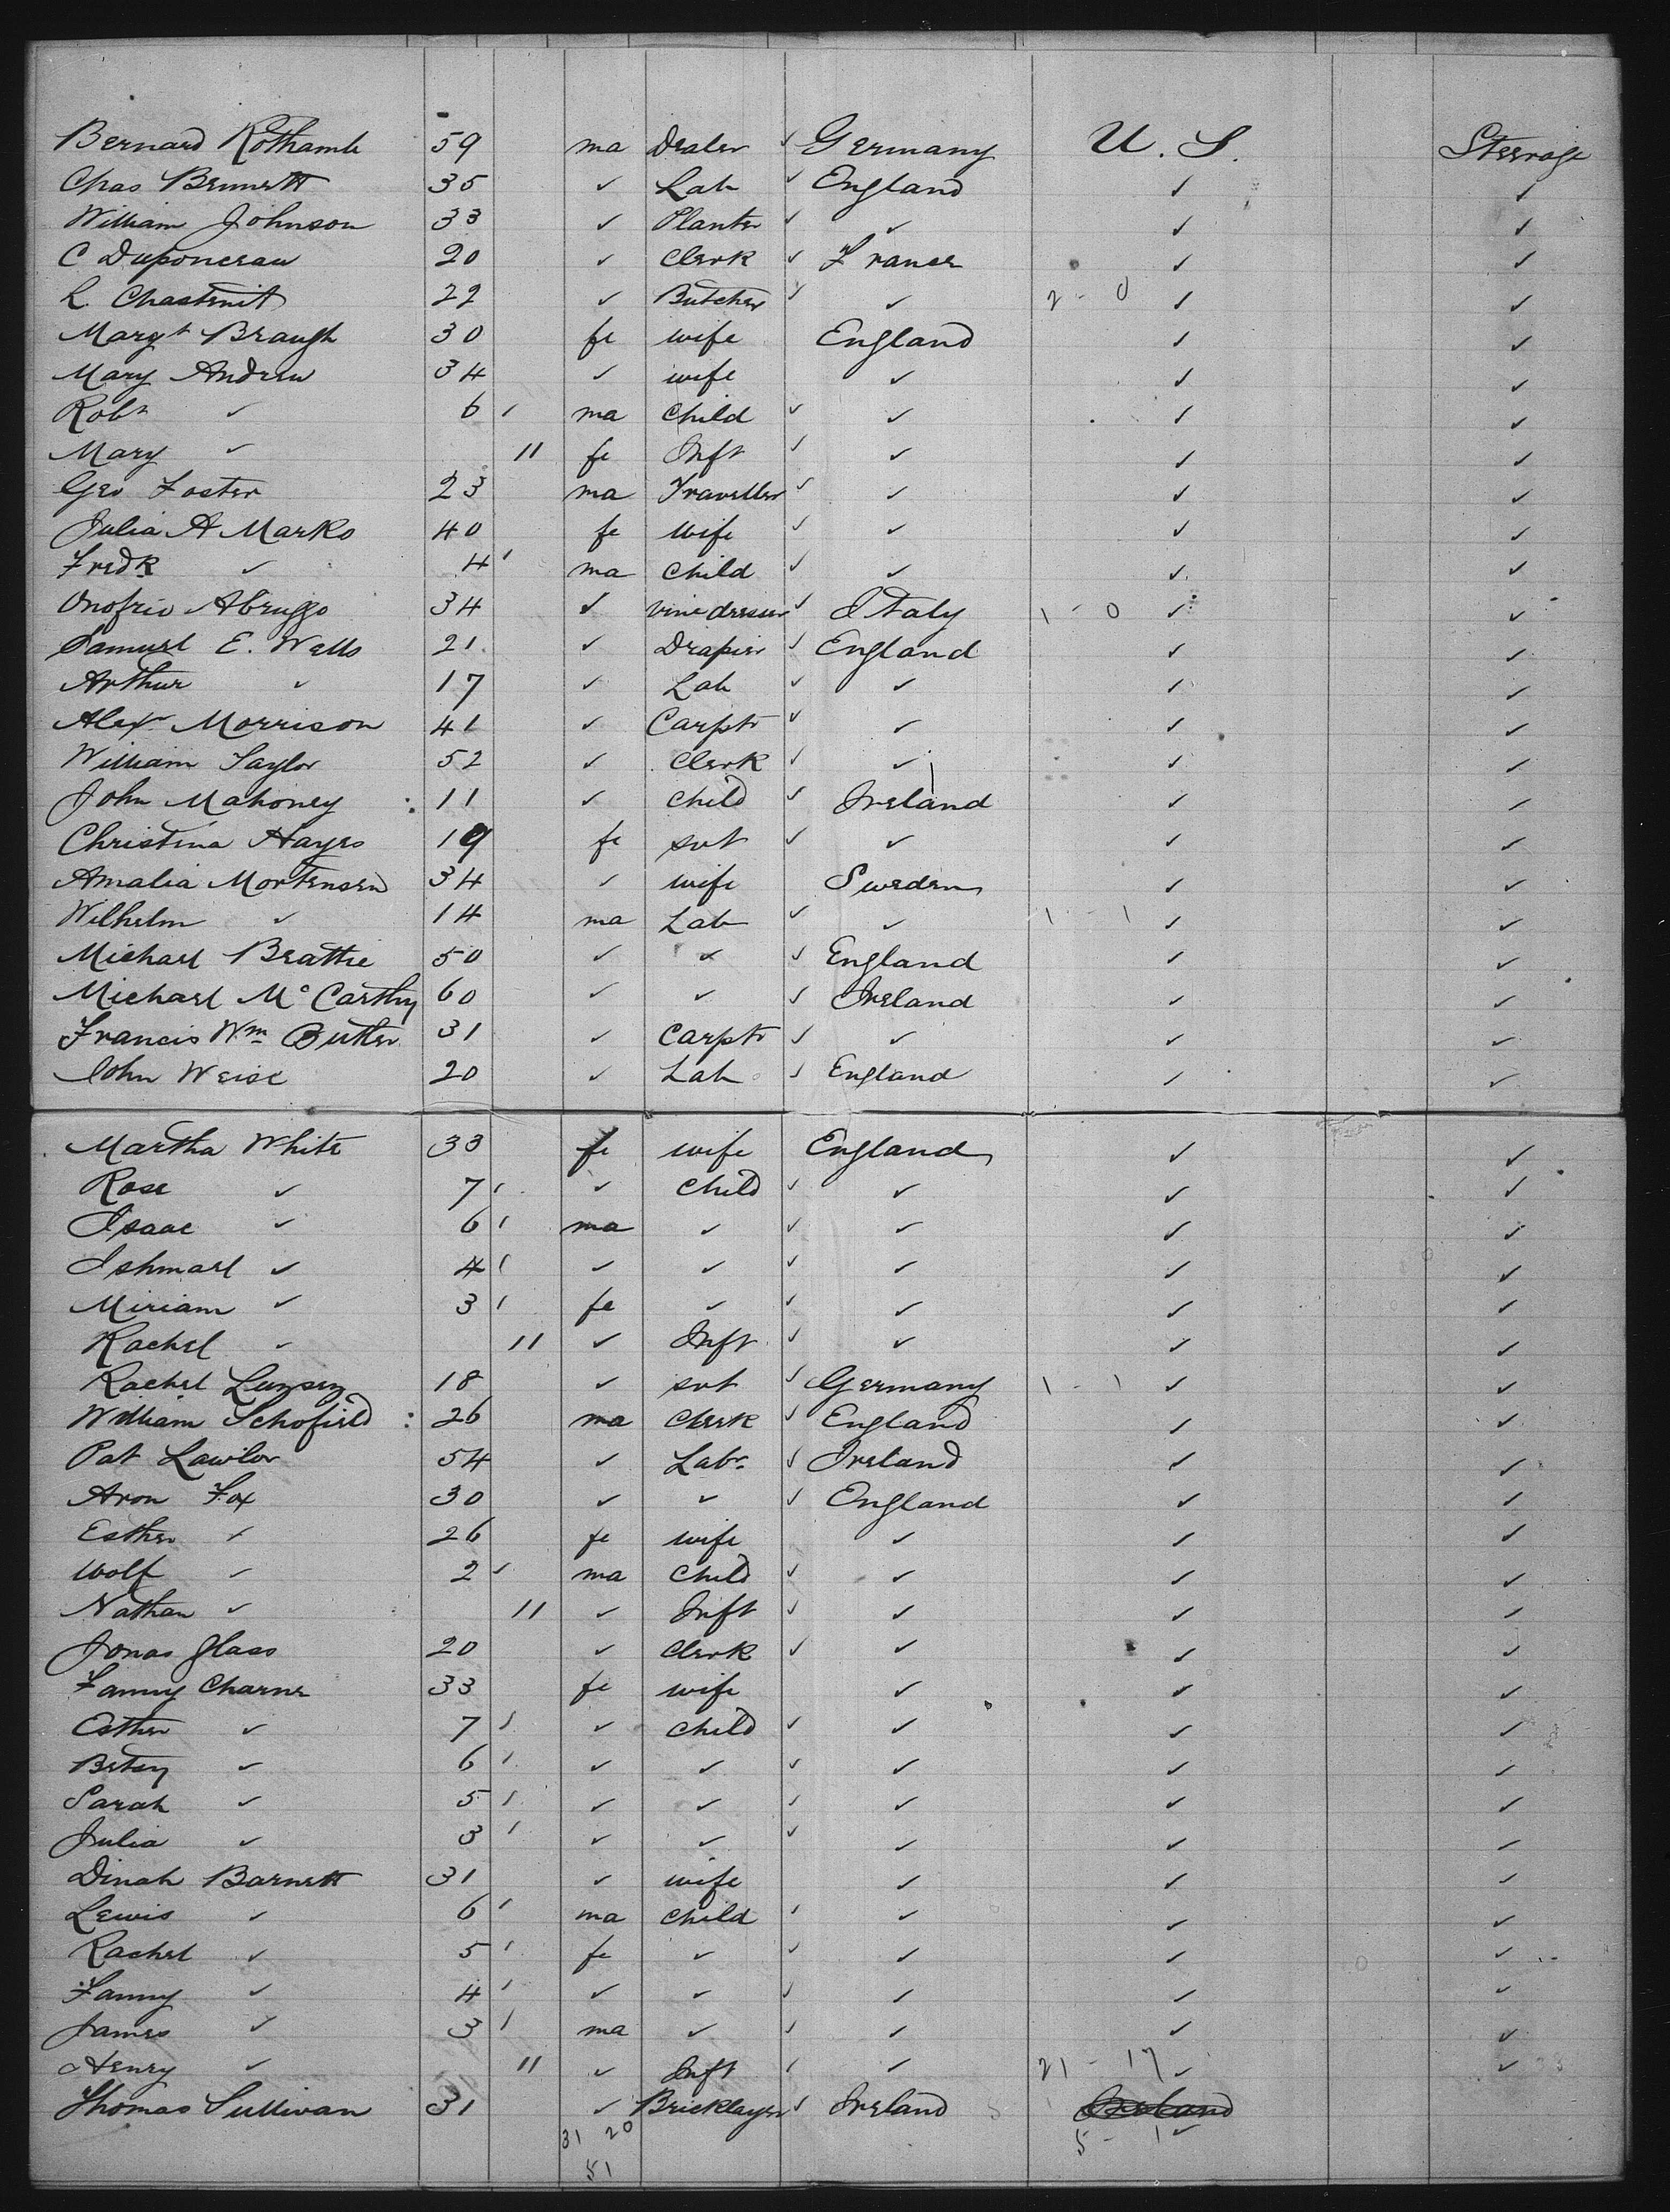 Bernard Rothamb 59 ma Dealer ✓ Germany U. S. Steerage
Chas Bennett 35 ✓ Lab ✓ England ✓ ✓
William Johnson 33 ✓ Planter ✓ ✓ ✓ ✓
C Duponceau 20 ✓ Clerk ✓ France ✓ ✓
L. Chastenit 22 ✓ Butcher ✓ ✓ 2 - 0 ✓ ✓
Margt Braugh 30 fe wife England ✓ ✓
Mary Andrew 34 ✓ wife ✓ ✓ ✓
Robt ✓ 6 ma Child ✓ ✓ ✓ ✓
Mary ✓ 11 fe Inft ✓ ✓ ✓ ✓
Geo Foster 23 ma Traveller ✓ ✓ ✓ ✓
Julia A Marks 40 fe wife ✓ ✓ ✓ ✓
Fredk ✓ 4 ma Child ✓ ✓ ✓ ✓
Onofrio Abruggo 34 ✓ vine dresser ✓ Italy 1 - 0 ✓ ✓
Samuel E. Wells 21 ✓ Draper ✓ England ✓ ✓
Arthur ✓ 17 ✓ Lab ✓ ✓ ✓ ✓
Alexr Morrison 41 ✓ Carptr ✓ ✓ ✓ ✓
William Taylor 52 ✓ Clerk ✓ ✓ ✓ ✓
John Mahoney : 11 ✓ Child ✓ Ireland ✓ ✓
Christina Hayes 19 fe svt ✓ ✓ ✓ ✓
Amalia Mortensen 34 ✓ wife Sweden ✓ ✓
Wilhelm ✓ 14 ma Lab ✓ ✓ 1 - 1 ✓ ✓
Michael Beattie 50 ✓ ✓ ✓ England ✓ ✓
Michael McCarthy 60 ✓ ✓ ✓ Ireland ✓ ✓
Francis Wm Butler 31 ✓ Carptr ✓ ✓ ✓ ✓
John Weise 20 ✓ Lab ✓ England ✓ ✓
Martha White 33 fe wife England ✓ ✓
Rose ✓ 7 ✓ Child ✓ ✓ ✓ ✓
Isaac ✓ 6 ma ✓ ✓ ✓ ✓ ✓
Ishmael ✓ 4 ✓ ✓ ✓ ✓ ✓ ✓
Miriam ✓ 3 fe ✓ ✓ ✓ ✓ ✓
Rachel ✓ 11 ✓ Inft ✓ ✓ ✓ ✓
Rachel 18 ✓ svt ✓ Germany 1 - 1 ✓ ✓
William Schofield : 26 ma Clerk ✓ England ✓ ✓
Pat Lawlor 54 ✓ Labr ✓ Ireland ✓ ✓
Aron Fox 30 ✓ ✓ ✓ England ✓ ✓
Esther ✓ 26 fe wife ✓ ✓ ✓
Wolf ✓ 2 ma Child ✓ ✓ ✓ ✓
Nathan ✓ 11 ✓ Inft ✓ ✓ ✓ ✓
Jonas Glass 20 ✓ Clerk ✓ ✓ ✓ ✓
Fanny Charne 33 fe wife ✓ ✓ ✓
Esther ✓ 7 ✓ Child ✓ ✓ ✓ ✓
Betsy ✓ 6 ✓ ✓ ✓ ✓ ✓ ✓
Sarah ✓ 5 ✓ ✓ ✓ ✓ ✓ ✓
Julia ✓ 3 ✓ ✓ ✓ ✓ ✓ ✓
Dinah Barnett 31 ✓ wife ✓ ✓ ✓
Lewis ✓ 6 ma Child ✓ ✓ ✓ ✓
Rachel ✓ 5 fe ✓ ✓ ✓ ✓ ✓
Fanny ✓ 4 ✓ ✓ ✓ ✓ ✓ ✓
James ✓ 3 ma ✓ ✓ ✓ ✓ ✓
Henry ✓ 11 ✓ Inft ✓ ✓ 21 - 17 ✓ ✓
Thomas Sullivan 31 ✓ Bricklayer ✓ Ireland Ireland
31 20 5 - 1 ✓
51